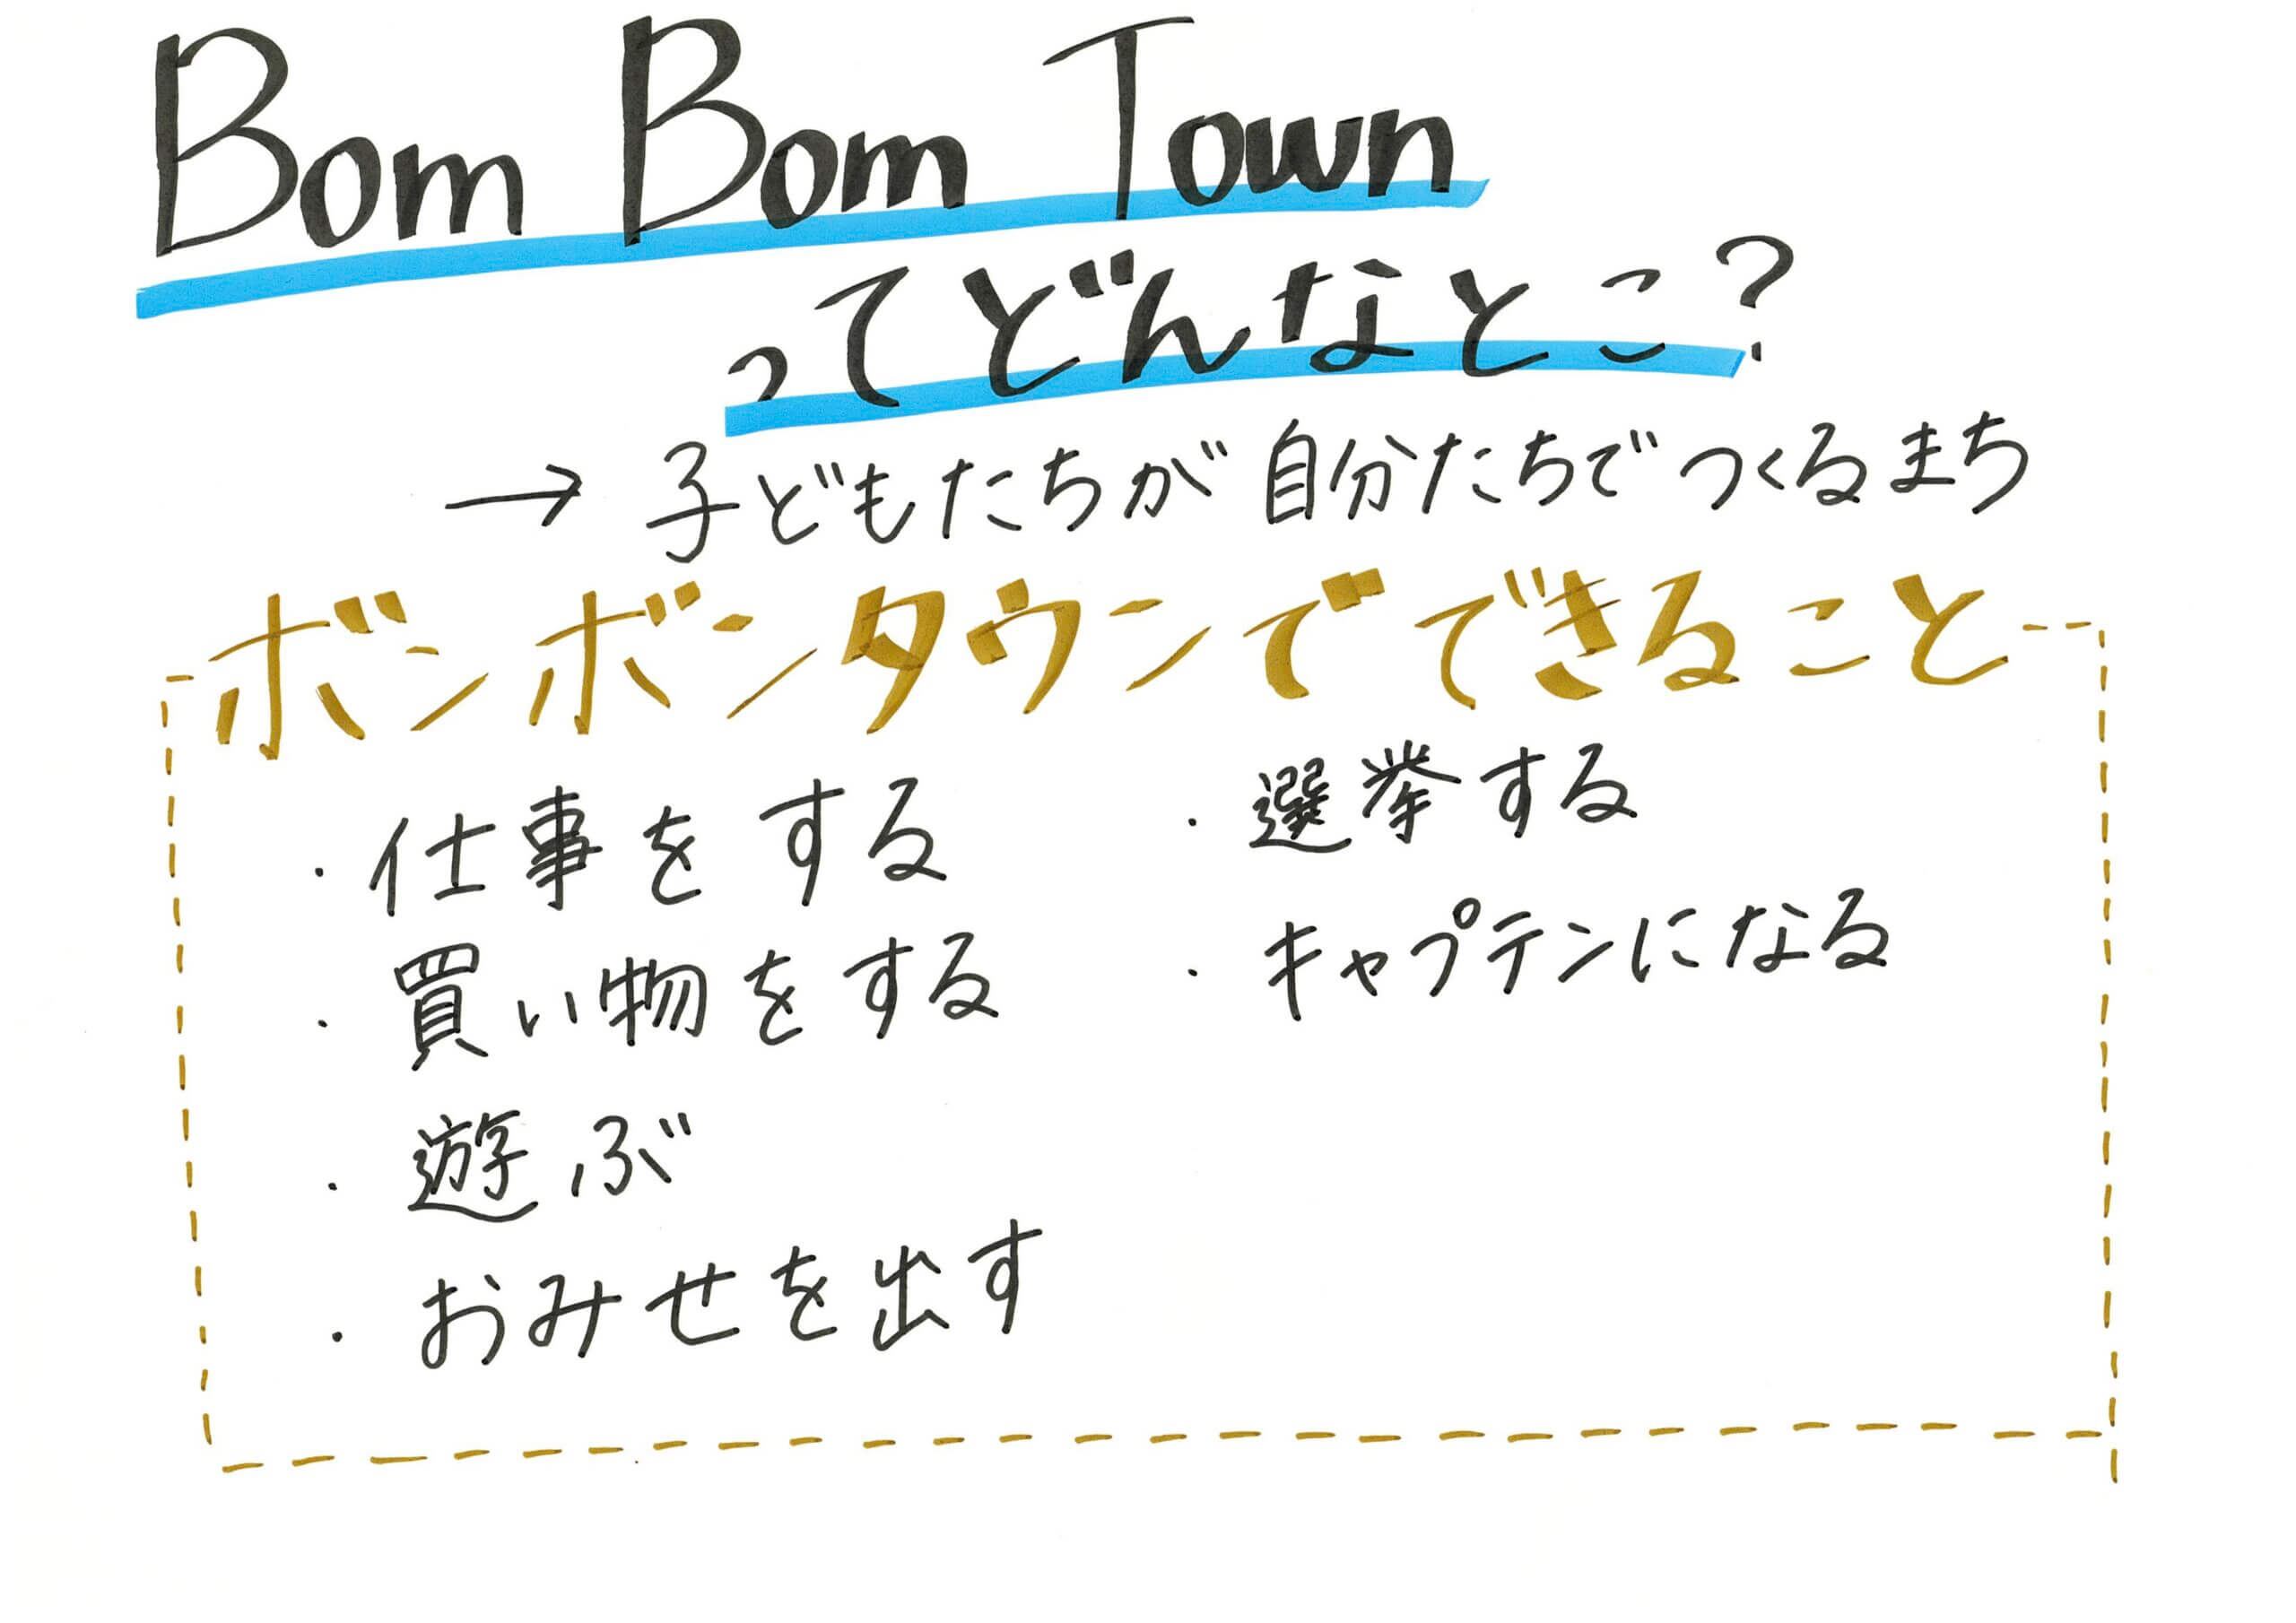 Bom Bom Town
ってどんなとこ?
→ 子どもたちが自分たちでつくるまち
ボンボンタウンでできること
・仕事をする
・買い物をする
・遊ぶ
・おみせを出す
・選挙する
・キャプテンになる